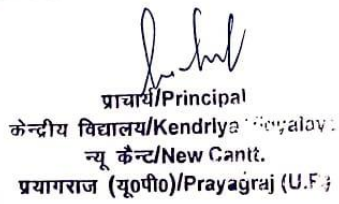 प्राचार्य/Principal
केन्द्रीय विद्यालय/Kendriya
न्यू कैन्ट/New Cantt.
प्रयागराज (यू०पी०)/Prayagraj